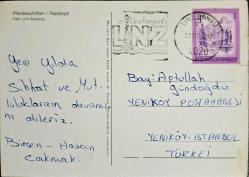 Pferdeschlitten / Radstadt
LINZ
Yeni Yılda
Sıhhat ve Mut-
luluklarının devamı-
nı dileriz.
Birsen - Hasan
Çakmak.
Bay: Aptullah
Gündoğdu
YENİKÖY POSTAHANESİ
YENİKÖY-İSTANBUL
TÜRKEİ